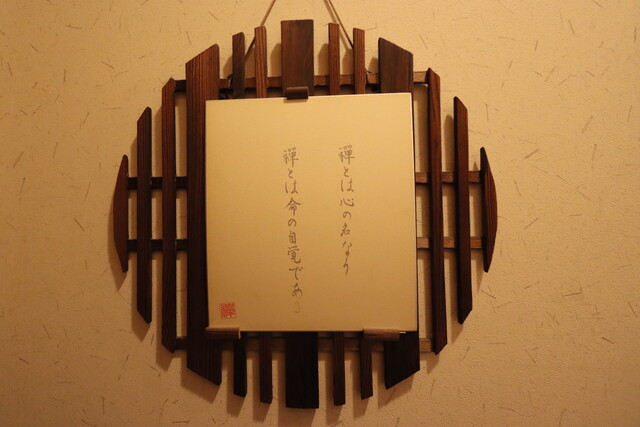 禅とは心の名なり
禅とは命の自覚である